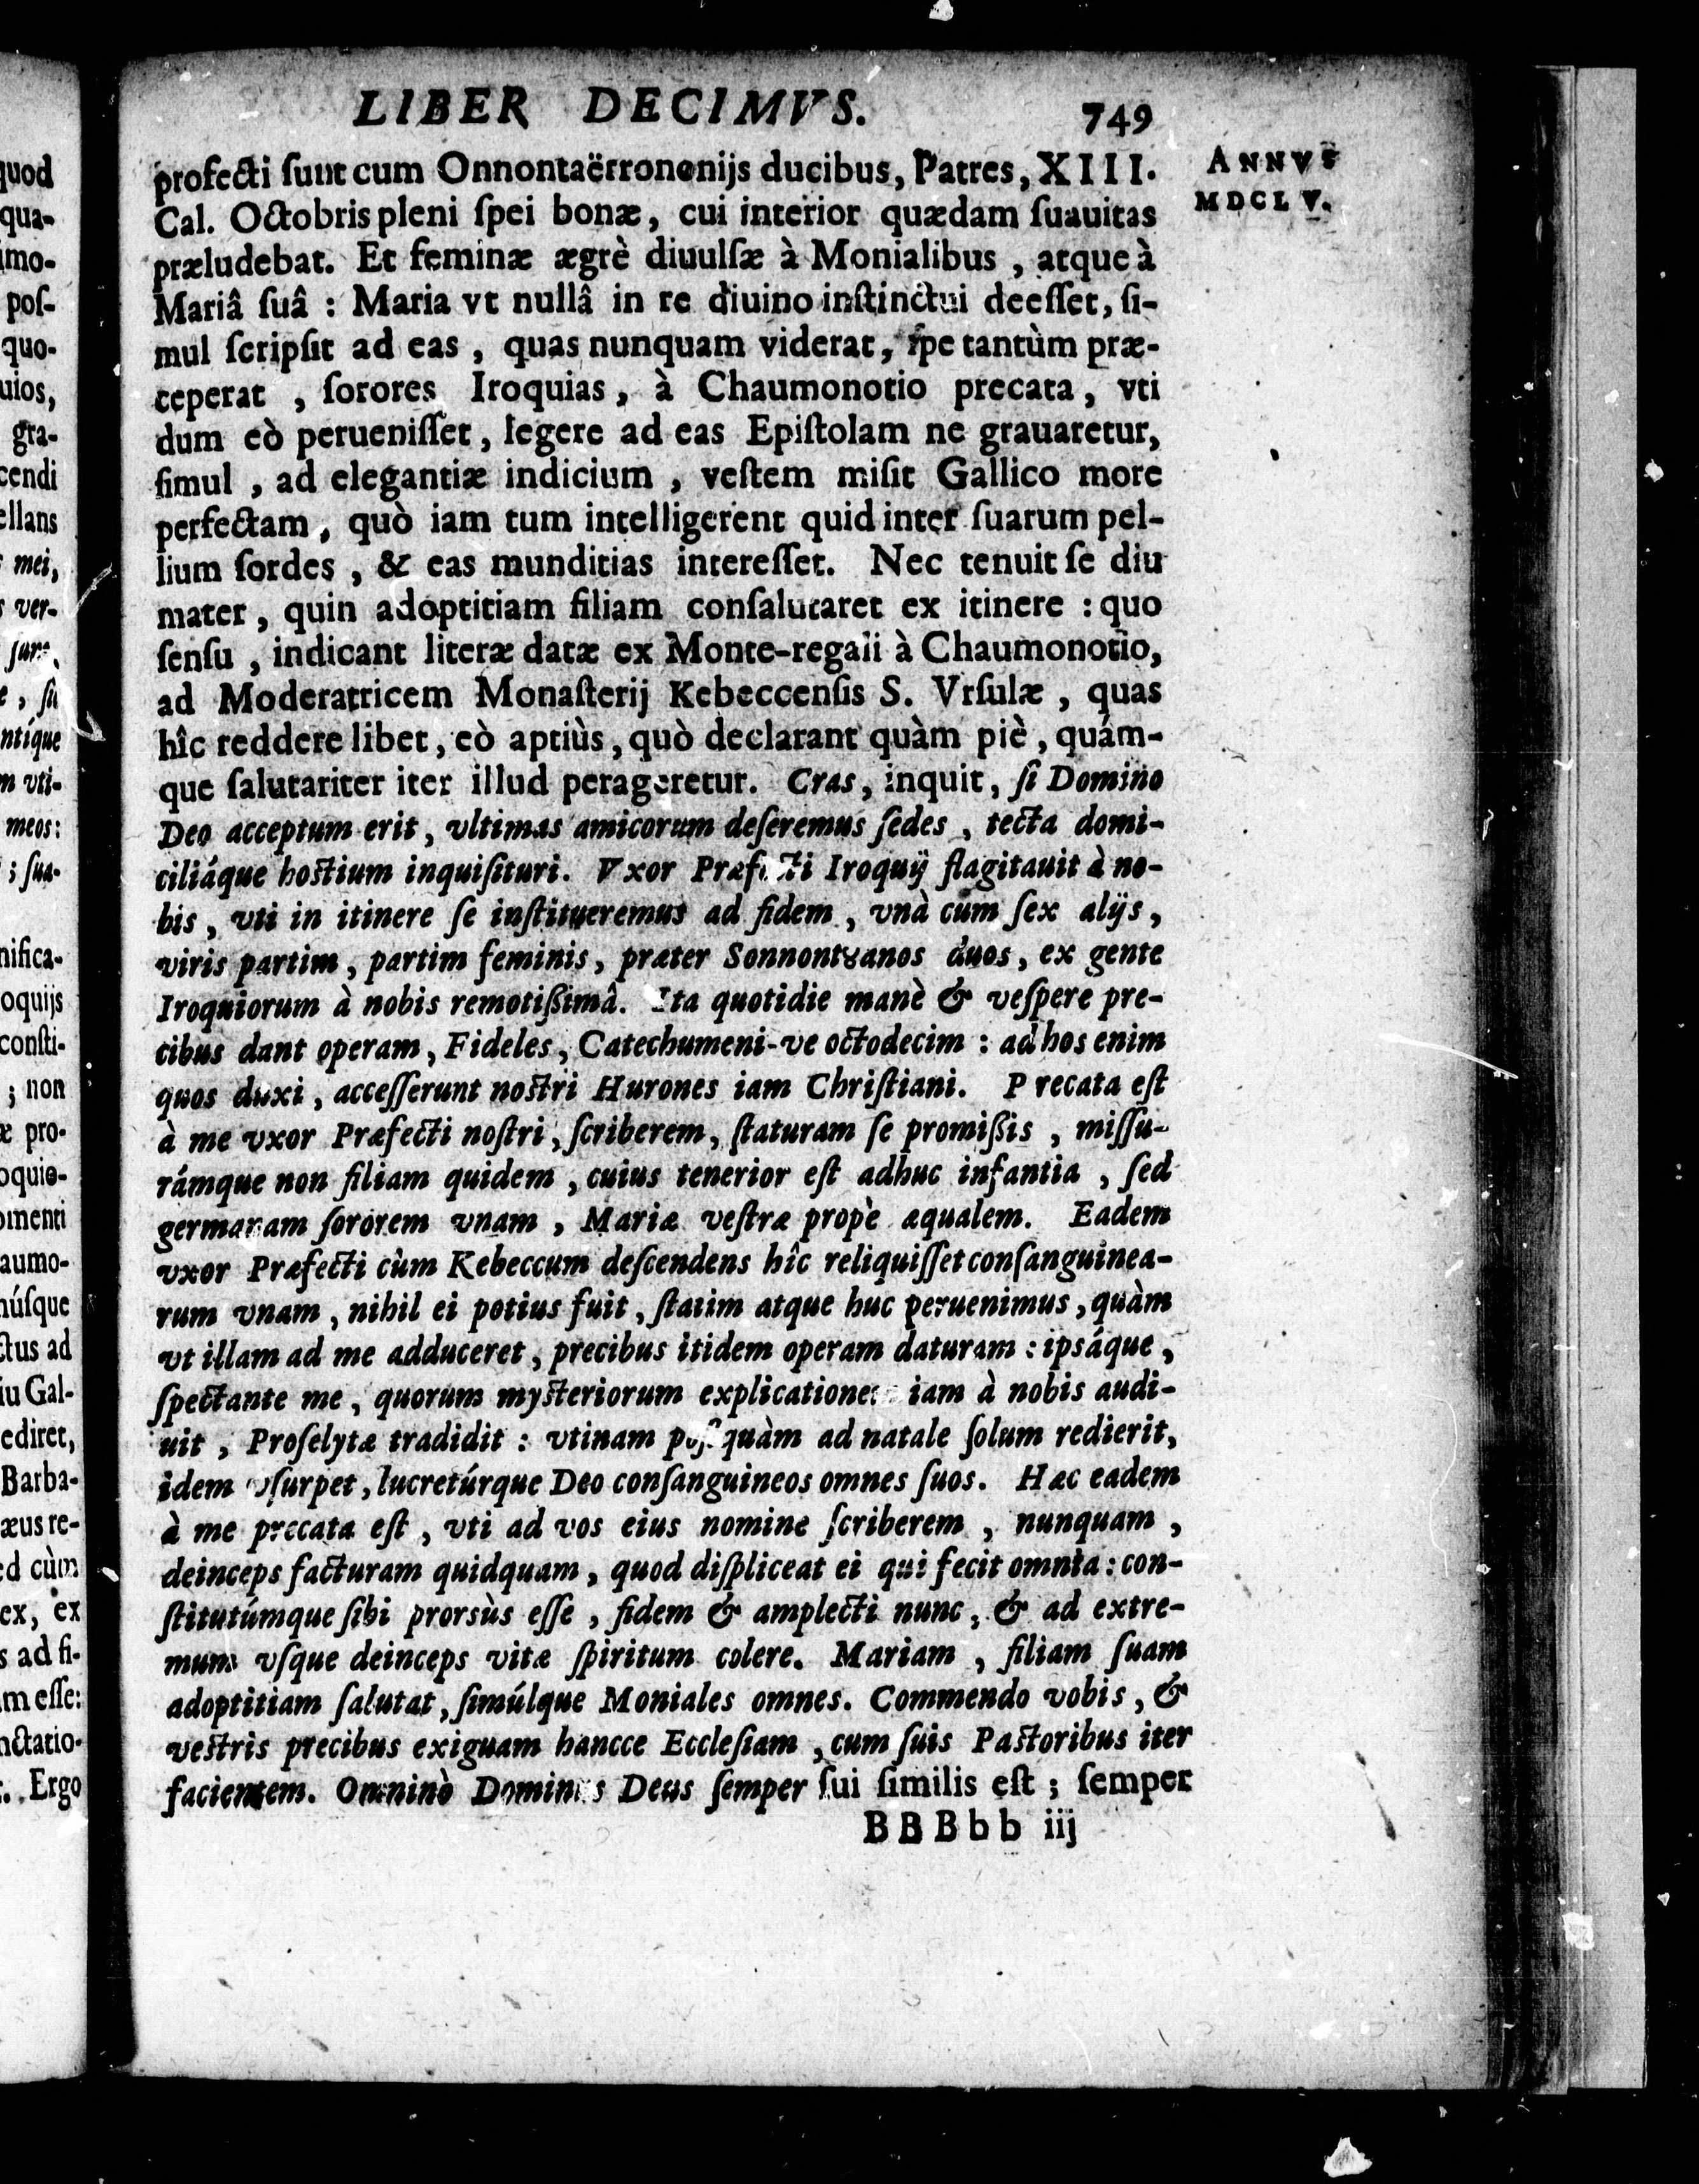 LIBER DECIMVS. 749
ANNVS
MDCLV.
profecti ſunt cum Onnontaërrononijs ducibus, Patres, XIII.
Cal. Octobris pleni ſpei bonæ, cui interior quædam ſuauitas
præludebat. Et feminæ ægrè diuulſæ à Monialibus, atque à
Mariâ ſuâ : Maria vt nullâ in re diuino inſtinctui deeſſet, ſi-
mul ſcripſit ad eas, quas nunquam viderat, ſpe tantùm præ-
ceperat, ſorores Iroquias, à Chaumonotio precata, vti
dum eò perueniſſet, legere ad eas Epiſtolam ne grauaretur,
ſimul, ad elegantiæ indicium, veſtem miſit Gallico more
perfectam, quò iam tum intelligerent quid inter ſuarum pel-
lium ſordes, & eas munditias intereſſet. Nec tenuit ſe diu
mater, quin adoptitiam filiam conſalutaret ex itinere : quo
ſenſu, indicant literæ datæ ex Monte-regali à Chaumonotio,
ad Moderatricem Monaſterij Kebeccenſis S. Vrſulæ, quas
hîc reddere libet, eò aptiùs, quò declarant quàm piè, quám-
que ſalutariter iter illud perageretur. Cras, inquit, ſi Domino
Deo acceptum erit, vltimas amicorum deſeremus ſedes, tecta domi-
ciliáque hoſtium inquiſituri. Vxor Præfecti Iroquij flagitauit à no-
bis, vti in itinere ſe inſtitueremus ad fidem, vnà cum ſex alijs,
viris partim, partim feminis, præter Sonnontȣanos duos, ex gente
Iroquiorum à nobis remotißimâ. Ita quotidie manè & veſpere pre-
cibus dant operam, Fideles, Catechumeni-ve octodecim : ad hos enim
quos duxi, acceſſerunt noſtri Hurones iam Chriſtiani. Precata eſt
à me vxor Præfecti noſtri, ſcriberem, ſtaturam ſe promißis, miſſu-
rámque non filiam quidem, cuius tenerior eſt adhuc infantia, ſed
germanam ſororem vnam, Mariæ veſtræ propè æqualem. Eadem
vxor Præfecti cùm Kebeccum deſcendens hîc reliquiſſet conſanguinea-
rum vnam, nihil ei potius fuit, ſtatim atque huc peruenimus, quàm
vt illam ad me adduceret, precibus itidem operam daturam : ipsáque,
ſpectante me, quorum myſteriorum explicationem iam à nobis audi-
uit, Proſelytæ tradidit : vtinam poſtquàm ad natale ſolum redierit,
idem vſurpet, lucretúrque Deo conſanguineos omnes ſuos. Hæc eadem
à me precata eſt, vti ad vos eius nomine ſcriberem, nunquam,
deinceps facturam quidquam, quod diſpliceat ei qui fecit omnia : con-
ſtitutúmque ſibi prorsùs eſſe, fidem & amplecti nunc, & ad extre-
mum vſque deinceps vitæ ſpiritum colere. Mariam, filiam ſuam
adoptitiam ſalutat, ſimúlque Moniales omnes. Commendo vobis, &
veſtris precibus exiguam hancce Eccleſiam, cum ſuis Paſtoribus iter
facientem. Omninò Dominus Deus ſemper ſui ſimilis eſt ; ſemper
BBBbb iij
quod
qua-
poſ-
quo-
uios,
gra-
cendi
ellans
mei,
ver-
ntíque
m vti-
meos:
; ſua-
nifica-
oquijs
conſti-
; non
æ pro-
oquio-
omenti
aumo-
núſque
ctus ad
iu Gal-
ediret,
Barba-
æus re-
ed cùm
ex, ex
s ad fi-
m eſſe:
nctatio-
. Ergo